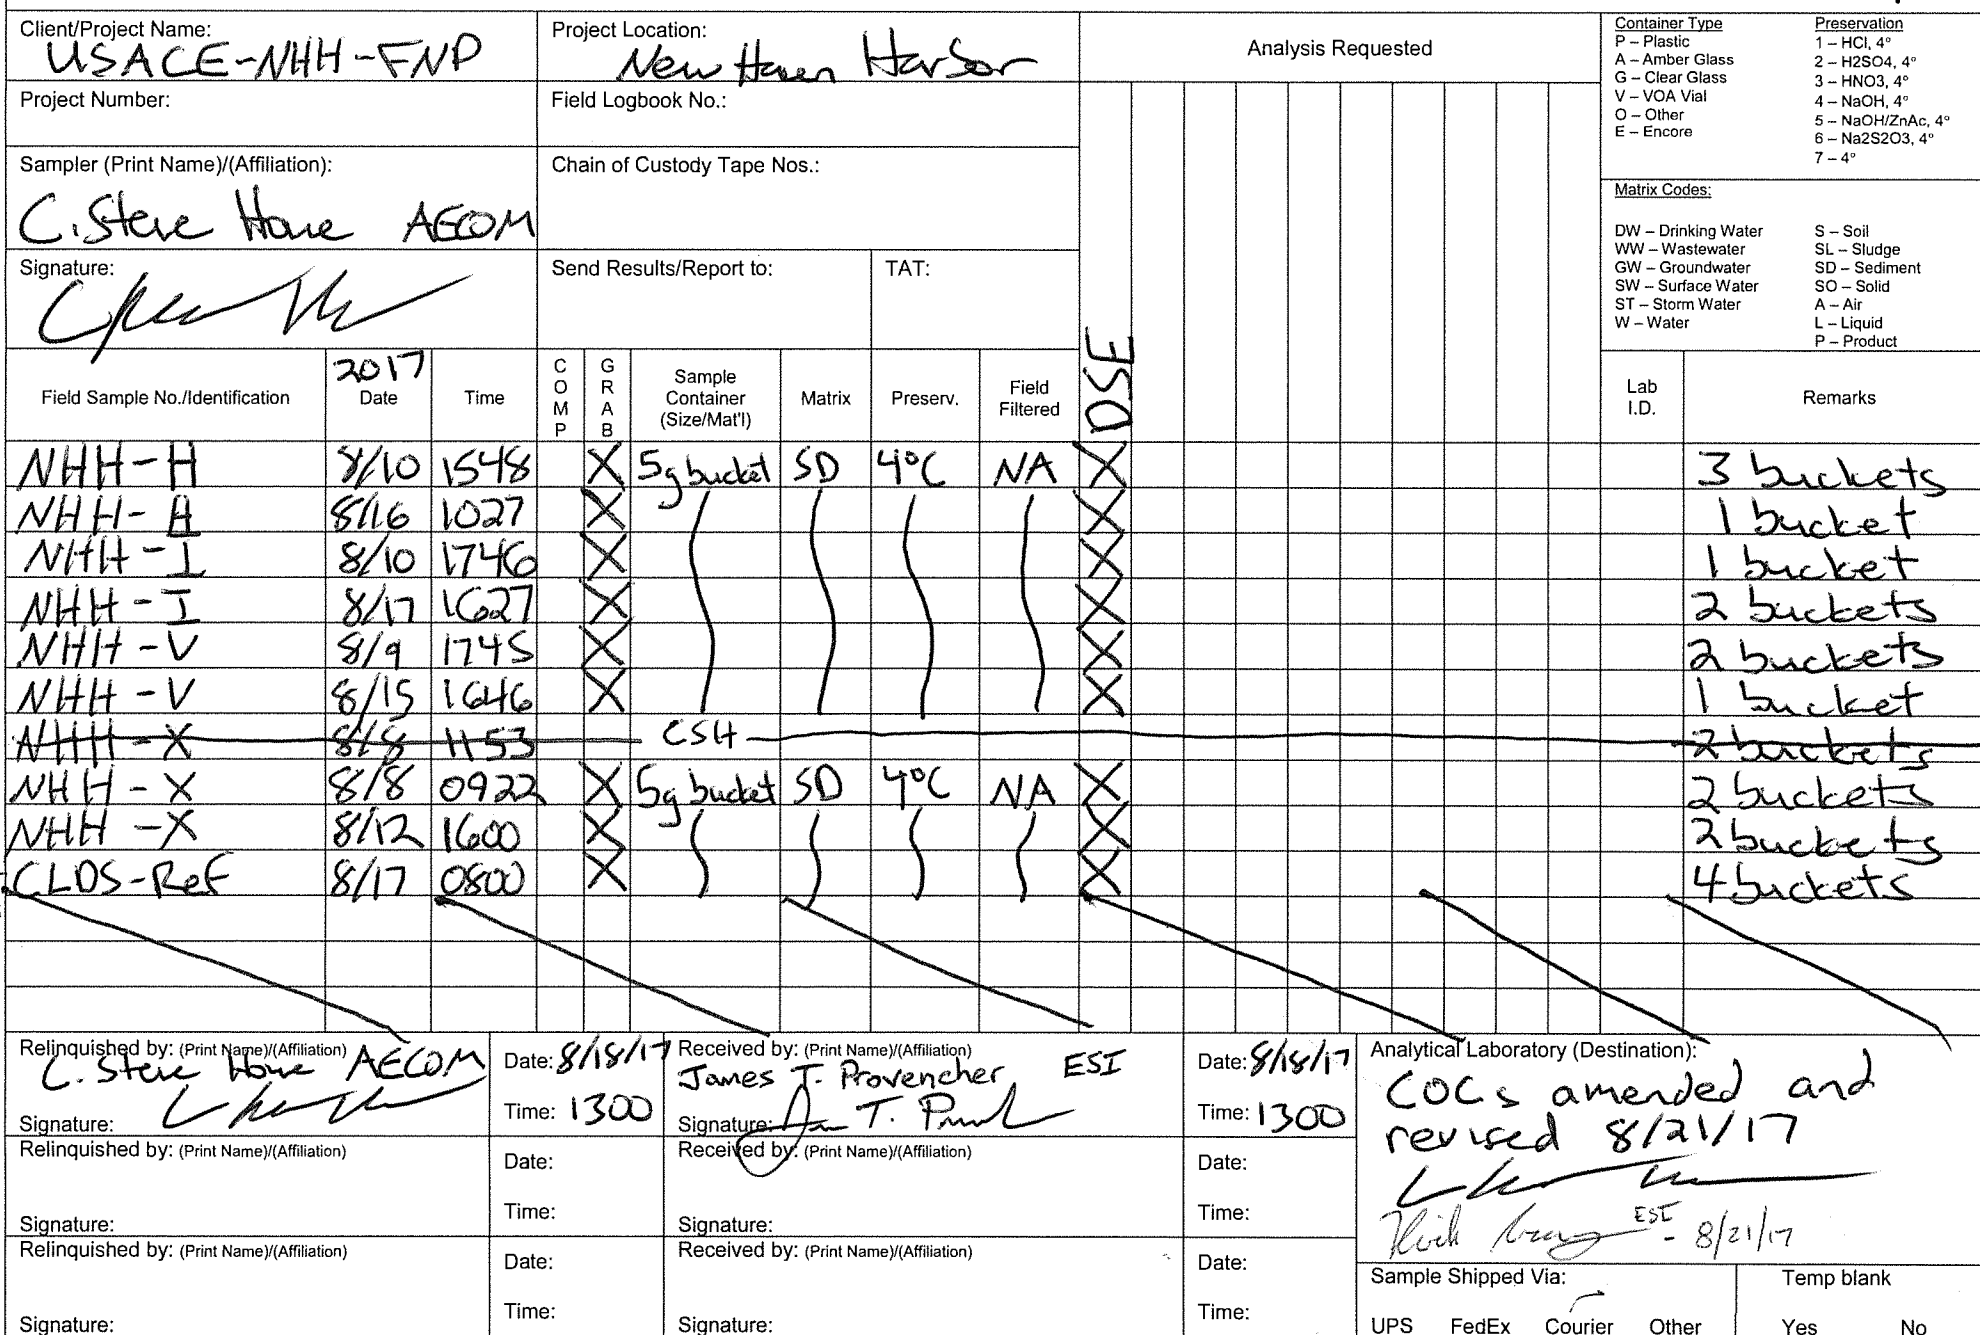 Client/Project Name:
USACE-NHH-FNP
Project Location:
New Haven Harbor
Analysis Requested
Container Type
P – Plastic
A – Amber Glass
G – Clear Glass
V – VOA Vial
O – Other
E – Encore
Preservation
1 – HCl, 4°
2 – H2SO4, 4°
3 – HNO3, 4°
4 – NaOH, 4°
5 – NaOH/ZnAc, 4°
6 – Na2S2O3, 4°
7 – 4°
Project Number:
Field Logbook No.:
Sampler (Print Name)/(Affiliation):
C. Steve Howe AECOM
Chain of Custody Tape Nos.:
Matrix Codes:
DW – Drinking Water
WW – Wastewater
GW – Groundwater
SW – Surface Water
ST – Storm Water
W – Water
S – Soil
SL – Sludge
SD – Sediment
SO – Solid
A – Air
L – Liquid
P – Product
Signature:
Send Results/Report to:
TAT:
Field Sample No./Identification
2017
Date
Time
COMP
GRAB
Sample
Container
(Size/Mat'l)
Matrix
Preserv.
Field
Filtered
DSE
Lab
I.D.
Remarks
NHH-H 8/10 1548 X 5g bucket SD 4°C NA X 3 buckets
NHH-H 8/16 1027 X X 1 bucket
NHH-I 8/10 1746 X X 1 bucket
NHH-I 8/17 1627 X X 2 buckets
NHH-V 8/9 1745 X X 2 buckets
NHH-V 8/15 1646 X X 1 bucket
NHH-X 8/8 1153 CSH 2 buckets
NHH-X 8/8 0922 X 5g bucket SD 4°C NA X 2 buckets
NHH-X 8/12 1600 X X 2 buckets
CLDS-Ref 8/17 0800 X X 4 buckets
Relinquished by: (Print Name)/(Affiliation)
C. Steve Howe AECOM
Signature:
Date: 8/18/17
Time: 1300
Received by: (Print Name)/(Affiliation)
James T. Provencher ESI
Signature:
Date: 8/18/17
Time: 1300
Analytical Laboratory (Destination):
COCs amended and
revised 8/21/17
ESI - 8/21/17
Relinquished by: (Print Name)/(Affiliation)
Signature:
Date:
Time:
Received by: (Print Name)/(Affiliation)
Signature:
Date:
Time:
Relinquished by: (Print Name)/(Affiliation)
Signature:
Date:
Time:
Received by: (Print Name)/(Affiliation)
Signature:
Date:
Time:
Sample Shipped Via:
UPS FedEx Courier Other
Temp blank
Yes No